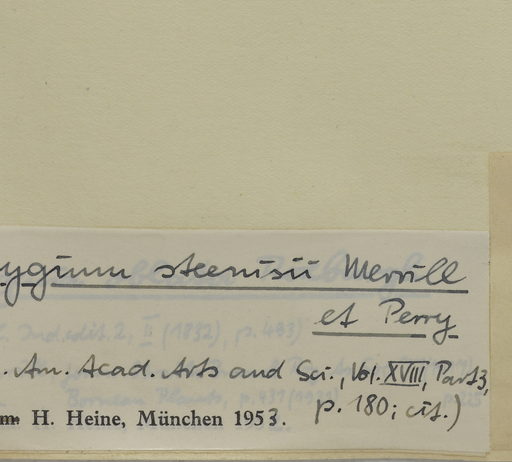 ygium steenisii Merrill
et Perry
. Am. Acad. Arts and Sci., Vol. XVIII, Part 3,
p. 180; cit.)
m H. Heine, München 1953.